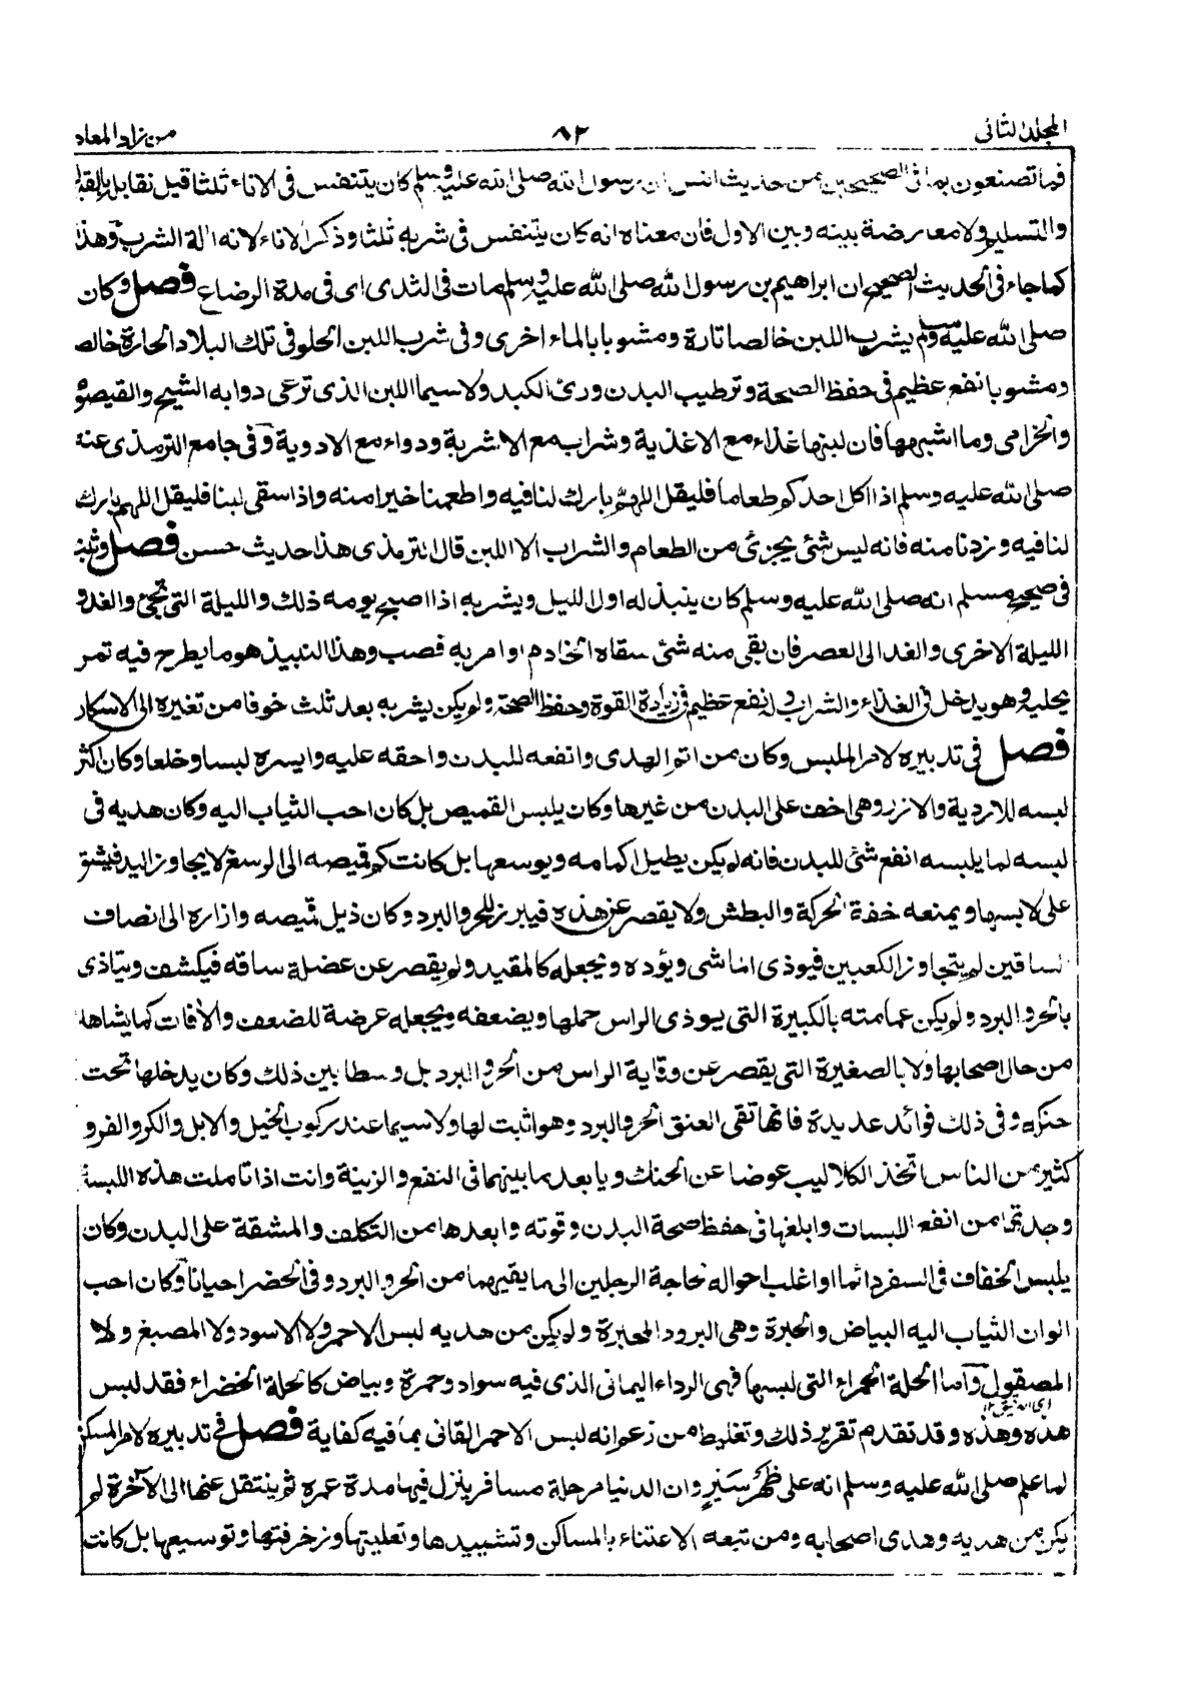 المجلد الثانى
٨٢
من زاد المعاد
فما تصنعون بما فى الصحيحين من حديث انس ان رسول الله صلى الله عليه وسلم كان يتنفس فى الاناء ثلثا قيل نقابل بالقبول
والتسليم ولا معارضة بينه وبين الاول فان معناه انه كان يتنفس فى شربه ثلثا وذكر الاناء لانه الة الشرب وهذا
كما جاء فى الحديث الصحيح ان ابراهيم بن رسول الله صلى الله عليه وسلم مات فى الثدى اى فى مدة الرضاع فصل وكان
صلى الله عليه وسلم يشرب اللبن خالصا تارة ومشوبا بالماء اخرى وفى شرب اللبن الحلو فى تلك البلاد الحارة خالصا
ومشوبا نفع عظيم فى حفظ الصحة وترطيب البدن ورى الكبد ولاسيما اللبن الذى ترعى دوابه الشيح والقيصوم
والخزامى وما اشبهها فان لبنها غذاء مع الاغذية وشراب مع الاشربة ودواء مع الادوية وفى جامع الترمذى عنه
صلى الله عليه وسلم اذا اكل احدكم طعاما فليقل اللهم بارك لنا فيه واطعمنا خيرا منه واذا سقى لبنا فليقل اللهم بارك
لنا فيه وزدنا منه فانه ليس شئ يجزئ من الطعام والشراب الا اللبن قال الترمذى هذا حديث حسن فصل وثبت
فى صحيح مسلم انه صلى الله عليه وسلم كان ينبذ له اول الليل ويشربه اذا اصبح يومه ذلك والليلة التى تجئ والغد و
الليلة الاخرى والغد الى العصر فان بقى منه شئ سقاه الخادم او امر به فصب وهذا النبيذ هو ما يطرح فيه تمر
يحليه وهو يدخل فى الغذاء والشراب وله نفع عظيم فى زيادة القوة وحفظ الصحة ولم يكن يشربه بعد ثلث خوفا من تغيره الى الاسكار
فصل فى تدبيره لامر الملبس وكان من اتم الهدى وانفعه للبدن واخفه عليه وايسره لبسا وخلعا وكان اكثر
لبسه للاردية والازر وهى اخف على البدن من غيرها وكان يلبس القميص بل كان احب الثياب اليه وكان هديه فى
لبسه لما يلبسه انفع شئ للبدن فانه لم يكن يطيل اكمامه ويوسعها بل كانت كم قميصه الى الرسغ لا يجاوز اليد فيشق
على لابسها ويمنعه خفة الحركة والبطش ولا يقصر عن هذه فيبرز للحر والبرد وكان ذيل قميصه وازاره الى انصاف
الساقين لم يتجاوز الكعبين فيوذى الماشى ويؤده ويجعله كالمقيد ولم يقصر عن عضلة ساقه فيكشف ويتاذى
بالحر والبرد ولم يكن عمامته بالكبيرة التى يوذى الراس حملها ويضعفه ويجعله عرضة للضعف والافات كما يشاهد
من حال اصحابها ولا بالصغيرة التى يقصر عن وقاية الراس من الحر والبرد بل وسطا بين ذلك وكان يدخلها تحت
حنكه وفى ذلك فوائد عديدة فانها تقى العنق الحر والبرد وهو اثبت لها ولاسيما عند ركوب الخيل والابل والكر والفر و
كثير من الناس اتخذ الكلاليب عوضا عن الحنك ويا بعد ما بينهما فى النفع والزينة وانت اذا تاملت هذه اللبسة
وجدتها من انفع اللبسات وابلغها فى حفظ صحة البدن وقوته وابعدها من التكلف والمشقة على البدن وكان
يلبس الخفاف فى السفر دائما او اغلب احواله لحاجة الرجلين الى ما يقيهما من الحر والبرد وفى الحضر احيانا وكان احب
الوان الثياب اليه البياض والحبرة وهى البرود المحبرة ولم يكن من هديه لبس الاحمر ولا الاسود ولا المصبغ ولا
المصقول واما الحلة الحمراء التى لبسها فهى الرداء اليمانى الذى فيه سواد وحمرة وبياض كالحلة الخضراء فقد لبس
هذه وهذه وقد تقدم تقرير ذلك وتغليط من زعم انه لبس الاحمر القانى بما فيه كفاية فصل فى تدبيره لامر المسكن
لما علم صلى الله عليه وسلم انه على ظهر سير وان الدنيا مرحلة مسافر ينزل فيها مدة عمره ثم ينتقل عنها الى الآخرة لم
يكن من هديه وهدى اصحابه ومن تبعه الاعتناء بالمساكن وتشييدها وتعليتها وزخرفتها وتوسيعها بل كانت